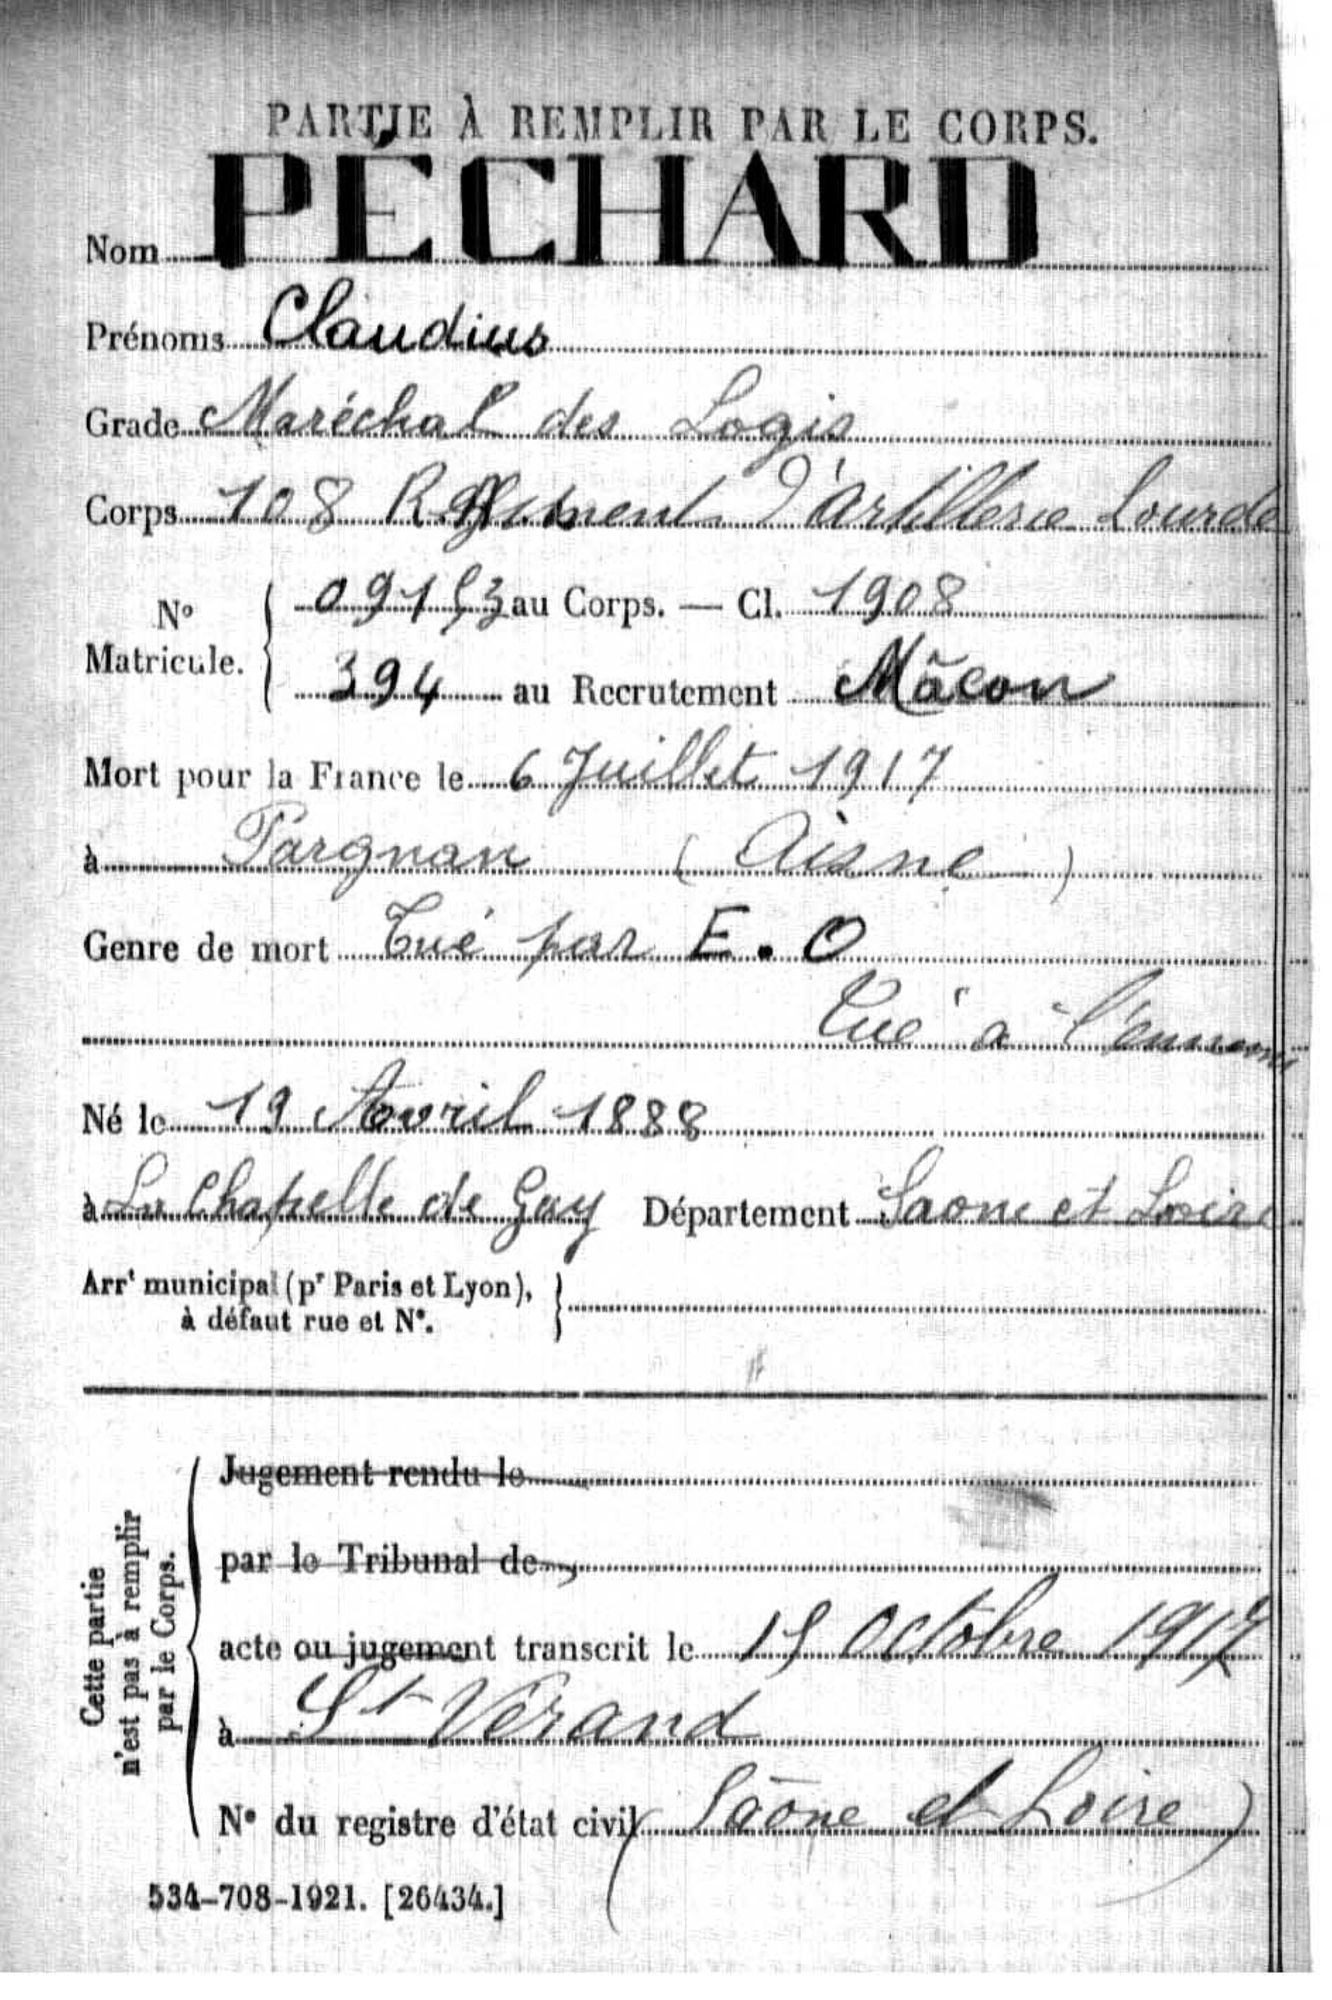 PARTIE À REMPLIR PAR LE CORPS.
Nom PÉCHARD
Prénoms Claudius
Grade Maréchal des Logis
Corps 108 Régiment d'Artillerie Lourde
N° Matricule. 09153 au Corps. — Cl. 1908
394 au Recrutement Mâcon
Mort pour la France le 6 Juillet 1917
à Pargnan (Aisne)
Genre de mort Tué par E. O
Tué à l'ennemi
Né le 19 Avril 1888
à La Chapelle de Guy Département Saone et Loire
Arrt municipal (pr Paris et Lyon),
à défaut rue et N°.
Cette partie
n'est pas à remplir
par le Corps.
Jugement rendu le
par le Tribunal de
acte ou jugement transcrit le 15 Octobre 1917
à St Vérand
N° du registre d'état civil (Saône et Loire)
534-708-1921. [26434.]